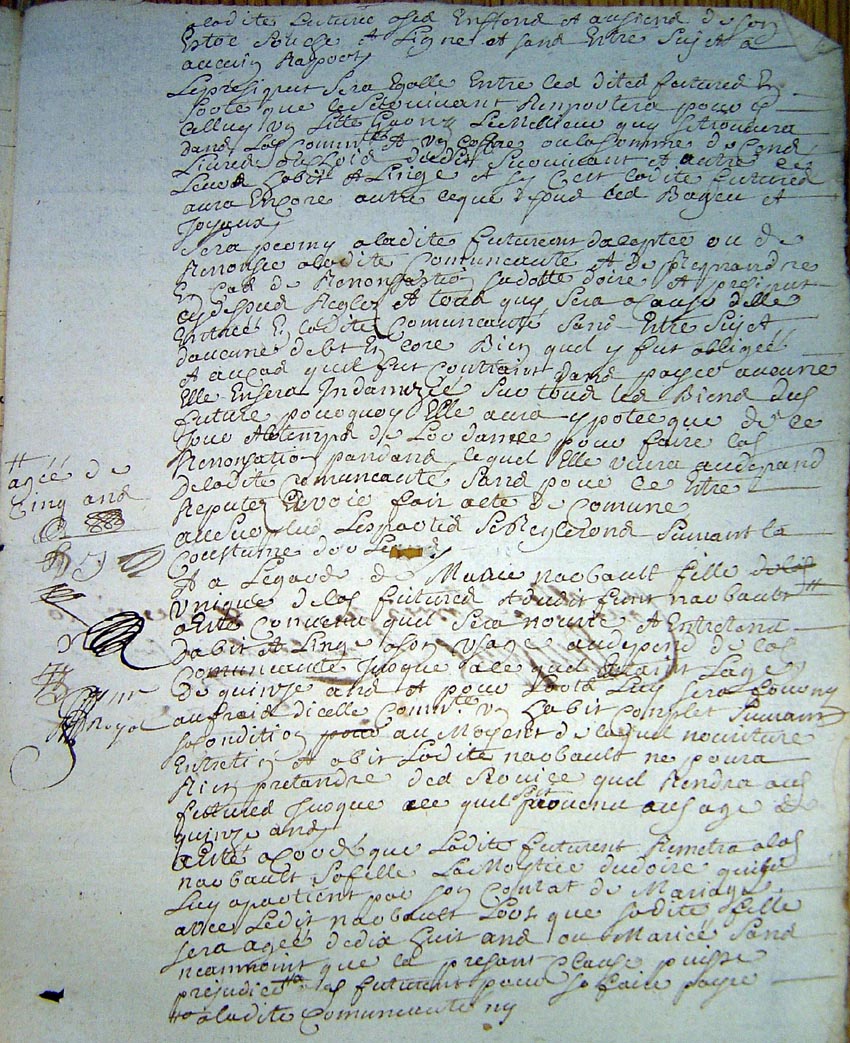 a ladite future osed Enffond et ansiend de son
Estoc Souche et Ligne et sand Entre Sujet a
aucun Raport
Lepresiput Sera Egalle Entre led dited futured En
Sorte que le Seurvivant Renportera pour
un Litte Garny Le Melieur quy setrouvera
dans La Commte et un Coffre ou la somme de Cend
Livred au Choid dudit Survivant et autre ce
Lesd habit et Linge et sy C'est ladite futured
aura Encore outre ce que desud led Bagen et
Joyaux
Sera permy a ladite future d'aceptee ou de
Renonsee a ladite Comuncauté et de Reprandre
En cas de Renonsation sa dotte doire et presiput
cy desud Reglez et toud quy Sera a Cause d'elle
Entree En ladite Comuncauté Sand Entre Sujet
d'aucune debt En core Bien quel y fut obligée
et au cas quil fut contraint dand payee aucune
Elle En sera Indamnizée Sur toud led Biend dud
future pour quoy Elle aura ypoteque de ce
Jour et tempd de Lordamce pour faire las
Renonsation pandand lequel Elle vivra audepand
De ladite Comuncauté sand pour ce Entre
Reputez avoir fait acte de Comune
au surplud Lespartid Se Reglerond Suivant la
Coustume d'orleand
Et a Legard de Marie naubault fille
unique de lad futured et dudit funt naubault #
a Eté Convenu quel Sera nourie et Entretenu
d'abit et Linge a son usage au depend de lad
Comuncauté Jusque a ce quel ait ataint L'age
de quinze and et pour Lord Luy Sera fourny
au fraid d'icelle Commte un habit Complet Suivant
sa condition au Moyent de laquel nouriture
Entretien et abit Ladite naubault ne poura
Rien pretandre ded Service quel Rendra aud
futured Jusque a ce quel soit parvenu aud age de
quinze and
a Eté acordé que Ladite futurent Remetra a lad
naubault Safille La Moytiee dudoire qui
Luy apartient par son Contrat de Mariage
avec Ledit naubault Lors que sadite fille
sera agée de dix huit and ou Mariée Sand
neammoint que la presant Clause puisse
prejudicier lad futurent pour se faire payee
a ladite Comuncauté ny
# agéé de
Cinq and
Royal